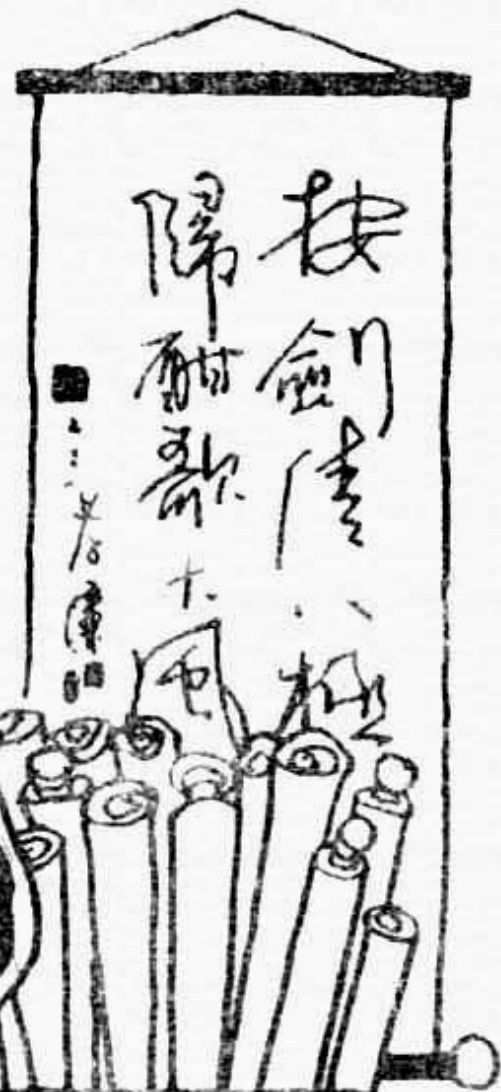 按劍清八極
歸酣歌大風